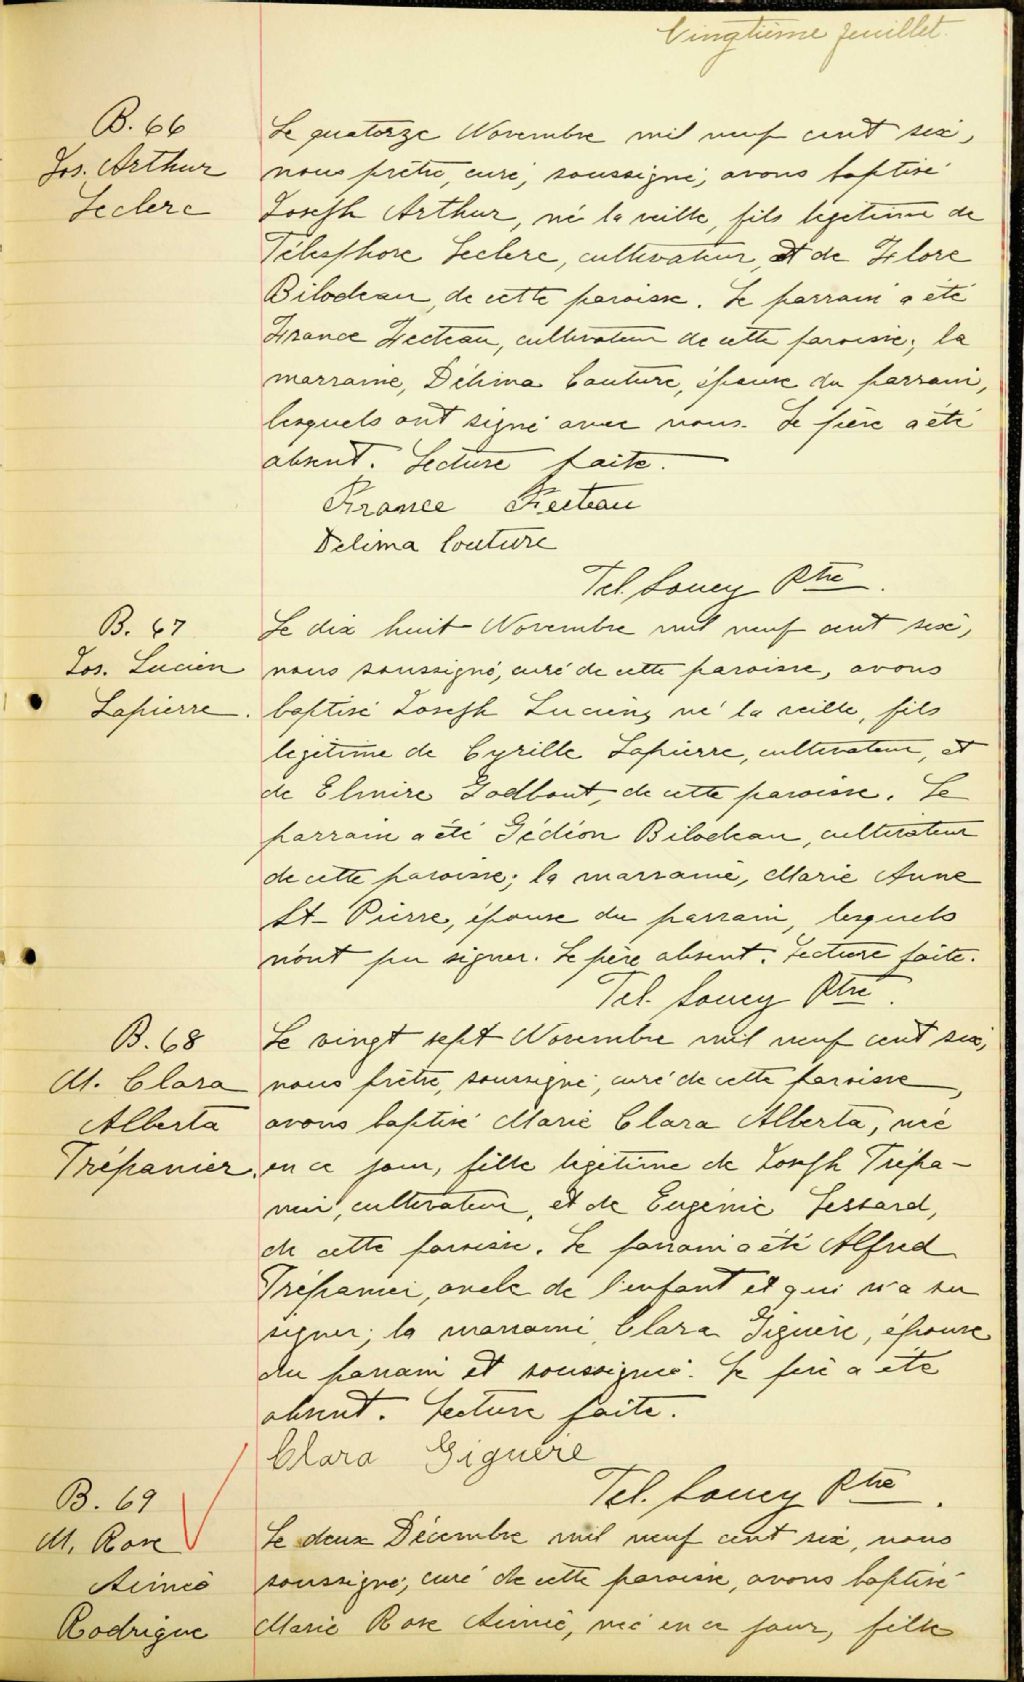 Vingtième feuillet.
B. 66
Jos. Arthur
Leclerc
Le quatorze Novembre mil neuf cent six,
nous prêtre, curé, soussigné, avons baptisé
Joseph Arthur, né la veille, fils légitime de
Télesphore Leclerc, cultivateur, et de Flore
Bilodeau, de cette paroisse. Le parrain a été
France Fecteau, cultivateur de cette paroisse; la
marraine, Délima Couture, épouse du parrain,
lesquels ont signé avec nous. Le père a été
absent. Lecture faite.
France Fecteau
Délima Couture
Tel. Soucy Ptre.
B. 67
Jos. Lucien
Lapierre.
Le dix huit Novembre mil neuf cent six,
nous soussigné, curé de cette paroisse, avons
baptisé Joseph Lucien, né la veille, fils
légitime de Cyrille Lapierre, cultivateur, et
de Elmire Godbout, de cette paroisse. Le
parrain a été Gédéon Bilodeau, cultivateur
de cette paroisse; la marraine, Marie Anne
St-Pierre, épouse du parrain, lesquels
n'ont pu signer. Le père absent. Lecture faite.
Tel. Soucy Ptre.
B. 68
M. Clara
Alberta
Trépanier.
Le vingt sept Novembre mil neuf cent six,
nous prêtre, soussigné, curé de cette paroisse,
avons baptisé Marie Clara Alberta, née
en ce jour, fille légitime de Joseph Trépa-
nier, cultivateur, et de Eugénie Lessard,
de cette paroisse. Le parrain a été Alfred
Trépanier, oncle de l'enfant et qui n'a su
signer; la marraine Clara Giguère, épouse
du parrain et soussignée. Le père a été
absent. Lecture faite.
Clara Giguère
Tel. Soucy Ptre.
B. 69
M. Rose
Aimée
Rodrigue
Le deux Décembre mil neuf cent six, nous
soussigné, curé de cette paroisse, avons baptisé
Marie Rose Aimée, née en ce jour, fille